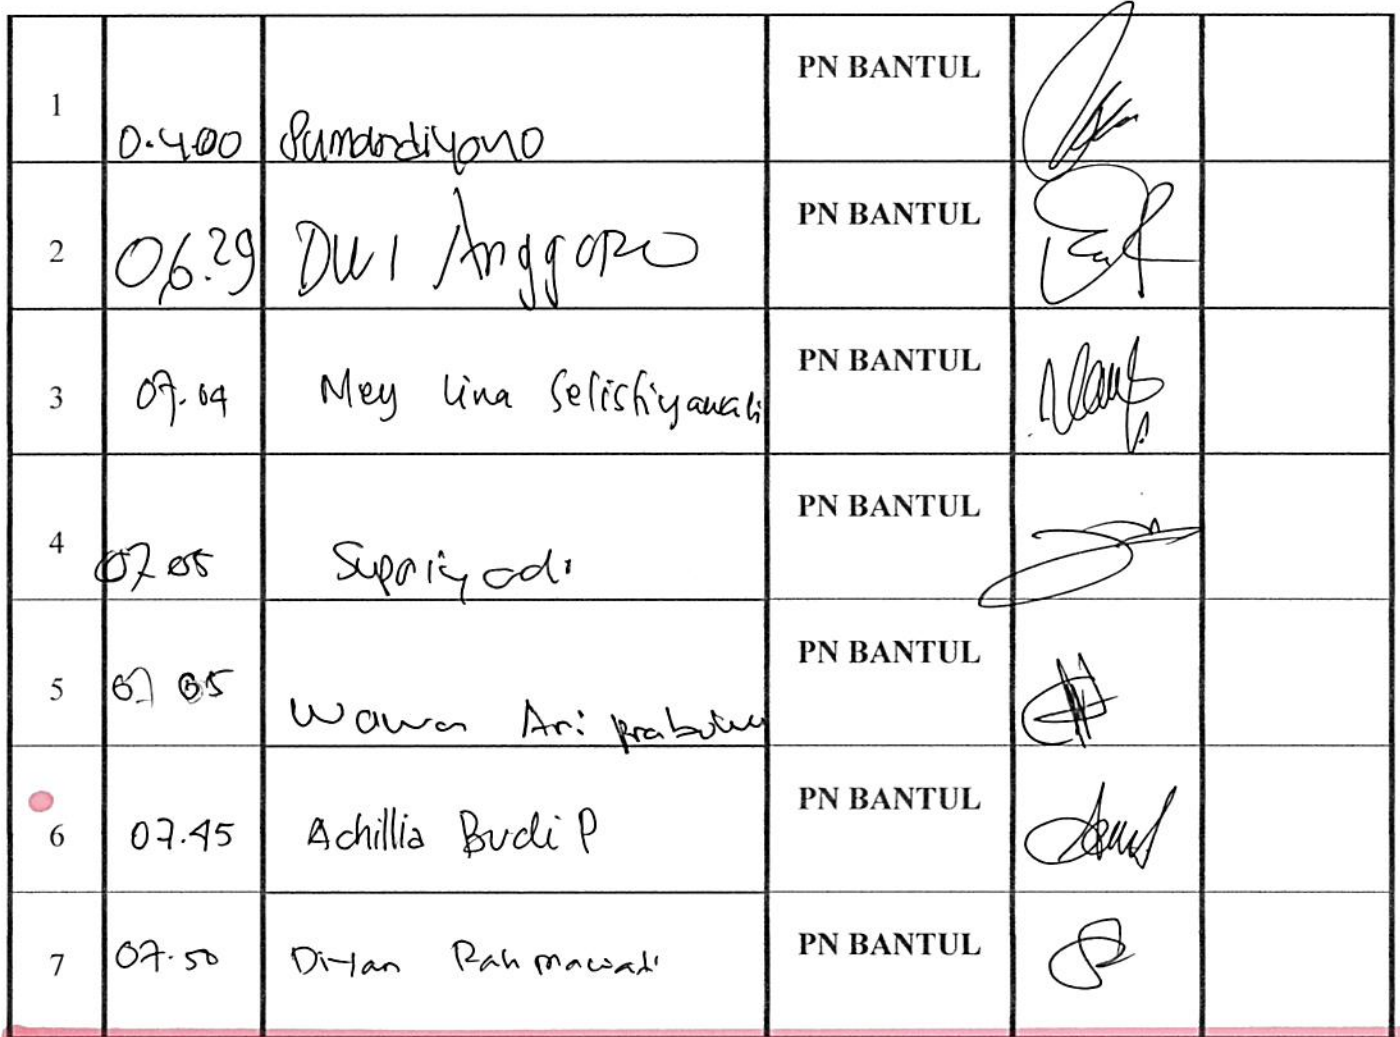 1 0.400 Sumardiyono PN BANTUL
2 06.29 DWI Anggoro PN BANTUL
3 07.04 Mey Lina Selistiyawati PN BANTUL
4 07 05 Supriyadi PN BANTUL
5 07 05 Wawan Ari Prabowo PN BANTUL
6 07.45 Achillia Budi P PN BANTUL
7 07.50 Rahmawati PN BANTUL